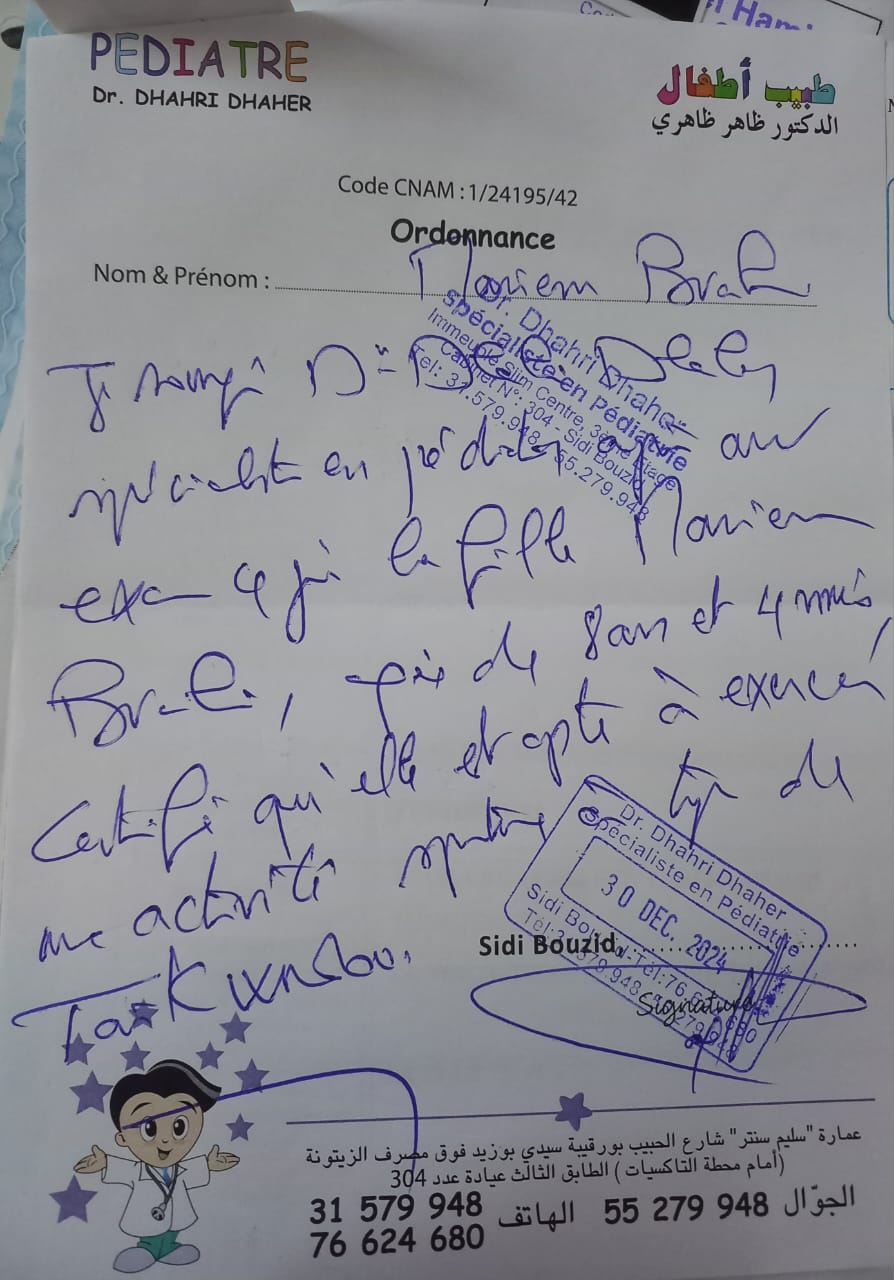 PEDIATRE
Dr. DHAHRI DHAHER
طبيب أطفال
الدكتور ظاهر ظاهري
Code CNAM : 1/24195/42
Ordonnance
Nom & Prénom : Mariem
Dr. Dhahri Dhaher
spécialiste en Pédiatrie
Immeuble Slim Centre, 3ème Etage
Cabinet N°: 304 - Sidi Bouzid
Tel: 31.579.948 55.279.948
Dr
spécialiste en pédiatrie au
la fille Mariem
de 8 ans et 4 mois,
Certifié qu'elle est apte à exercer
une activité sportive type de
Taekwondo.
Dr. Dhahri Dhaher
Spécialiste en Pédiatrie
30 DEC. 2024
Sidi Bouzid
Signature
عمارة "سليم سنتر" شارع الحبيب بورقيبة سيدي بوزيد فوق مصرف الزيتونة
(أمام محطة التاكسيات) الطابق الثالث عيادة عدد 304
الجوّال 55 279 948 الهاتف 31 579 948
76 624 680